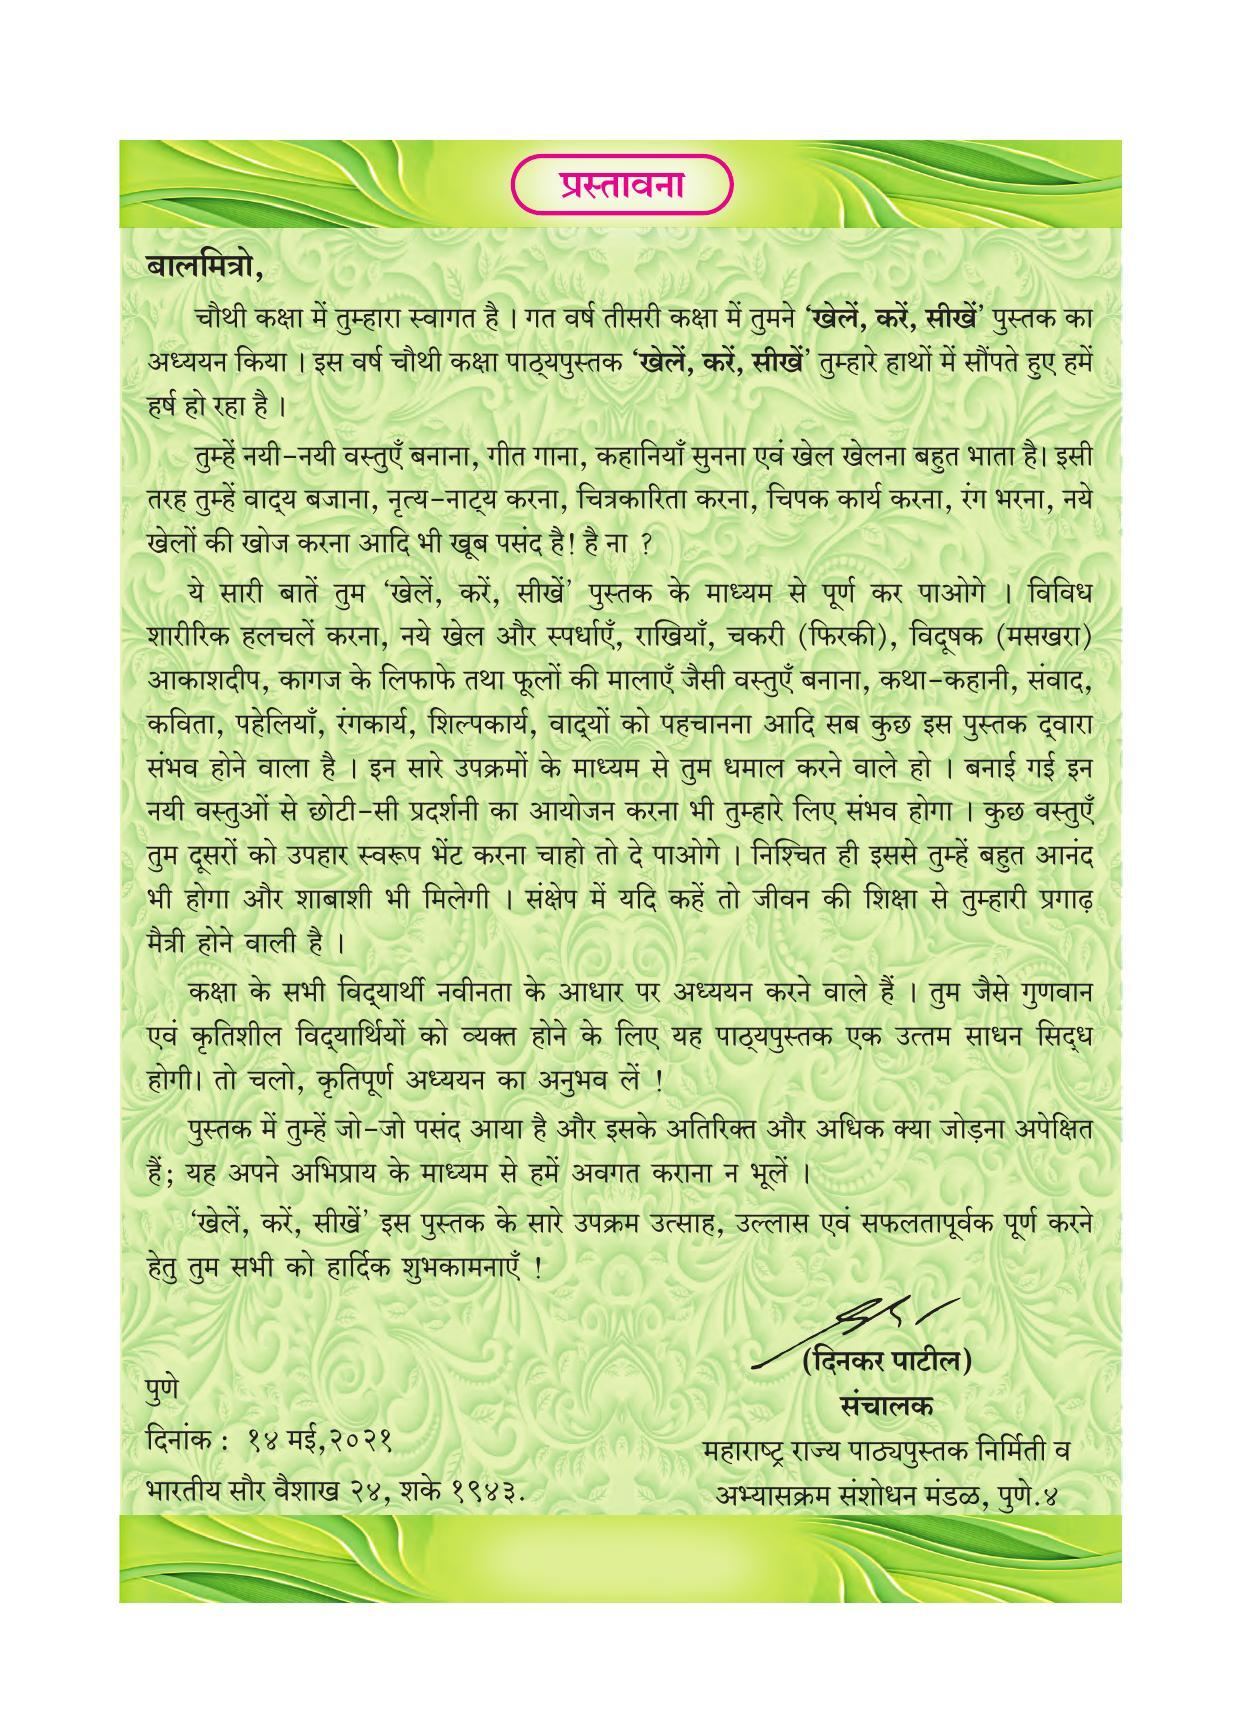 प्रस्तावना
बालमित्रो,
चौथी कक्षा में तुम्हारा स्वागत है । गत वर्ष तीसरी कक्षा में तुमने ‘खेलें, करें, सीखें’ पुस्तक का
अध्ययन किया । इस वर्ष चौथी कक्षा पाठ्‍यपुस्तक ‘खेलें, करें, सीखें’ तुम्हारे हाथों में सौंपते हुए हमें
हर्ष हो रहा है ।
तुम्हें नयी-नयी वस्तुएँ बनाना, गीत गाना, कहानियाँ सुनना एवं खेल खेलना बहुत भाता है। इसी
तरह तुम्हें वाद्‌य बजाना, नृत्य-नाट्‌य करना, चित्रकारिता करना, चिपक कार्य करना, रंग भरना, नये
खेलों की खोज करना आदि भी खूब पसंद है! है ना ?
ये सारी बातें तुम ‘खेलें, करें, सीखें’ पुस्तक के माध्यम से पूर्ण कर पाओगे । विविध
शारीरिक हलचलें करना, नये खेल और स्पर्धाएँ, राखियाँ, चकरी (फिरकी), विदूषक (मसखरा)
आकाशदीप, कागज के लिफाफे तथा फूलों की मालाएँ जैसी वस्तुएँ बनाना, कथा-कहानी, संवाद,
कविता, पहेलियाँ, रंगकार्य, शिल्पकार्य, वाद्‌यों को पहचानना आदि सब कुछ इस पुस्तक द्‌वारा
संभव होने वाला है । इन सारे उपक्रमों के माध्यम से तुम धमाल करने वाले हो । बनाई गई इन
नयी वस्तुओं से छोटी-सी प्रदर्शनी का आयोजन करना भी तुम्हारे लिए संभव होगा । कुछ वस्तुएँ
तुम दूसरों को उपहार स्वरूप भेंट करना चाहो तो दे पाओगे । निश्चित ही इससे तुम्हें बहुत आनंद
भी होगा और शाबाशी भी मिलेगी । संक्षेप में यदि कहें तो जीवन की शिक्षा से तुम्हारी प्रगाढ़
मैत्री होने वाली है ।
कक्षा के सभी विद्‌यार्थी नवीनता के आधार पर अध्ययन करने वाले हैं । तुम जैसे गुणवान
एवं कृतिशील विद्‌यार्थियों को व्यक्त होने के लिए यह पाठ्‌यपुस्तक एक उत्तम साधन सिद्‌ध
होगी। तो चलो, कृतिपूर्ण अध्ययन का अनुभव लें !
पुस्तक में तुम्हें जो-जो पसंद आया है और इसके अतिरिक्त और अधिक क्या जोड़ना अपेक्षित
हैं; यह अपने अभिप्राय के माध्यम से हमें अवगत कराना न भूलें ।
‘खेलें, करें, सीखें’ इस पुस्तक के सारे उपक्रम उत्साह, उल्लास एवं सफलतापूर्वक पूर्ण करने
हेतु तुम सभी को हार्दिक शुभकामनाएँ !
(दिनकर पाटील)
संचालक
महाराष्ट्र राज्य पाठ्यपुस्तक निर्मिती व
अभ्यासक्रम संशोधन मंडळ, पुणे.४
पुणे
दिनांक : १४ मई,२०२१
भारतीय सौर वैशाख २४, शके १९४३.